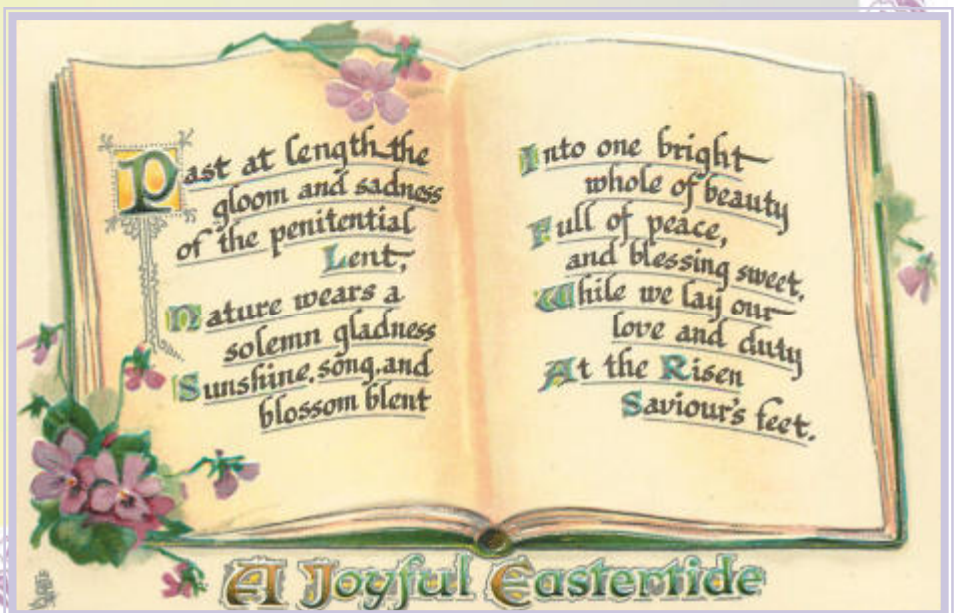 Past at length the
gloom and sadness
of the penitential
Lent,
Nature wears a
solemn gladness
Sunshine, song, and
blossom blent
Into one bright
whole of beauty
Full of peace,
and blessing sweet,
While we lay our
love and duty
At the Risen
Saviour's feet.
A Joyful Eastertide